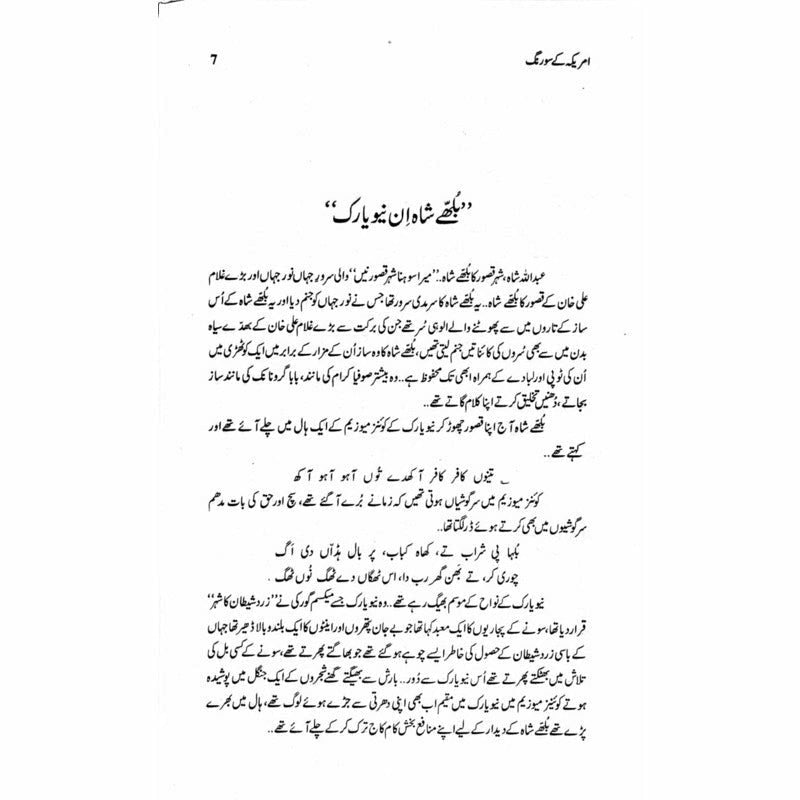 امریکہ کے سو رنگ
7
”بُلھّے شاہ اِن نیویارک“
عبداللہ شاہ، شہر قصور کا بُلھّے شاہ.. ”میرا سوہنا شہر قصور نیں“ والی سرورِ جہاں نور جہاں اور بڑے غلام
علی خان کے قصور کا بُلھّے شاہ.. یہ بُلھّے شاہ کا سرمدی سرور تھا جس نے نور جہاں کو جنم دیا اور یہ بُلھّے شاہ کے اُس
ساز کے تاروں میں سے پھوٹنے والے الوہی سُر تھے جن کی برکت سے بڑے غلام علی خان کے بھدّے سیاہ
بدن میں سے بھی سُروں کی کائناتیں جنم لیتی تھیں، بُلھّے شاہ کا وہ ساز اُن کے مزار کے برابر میں ایک کوٹھڑی میں
اُن کی ٹوپی اور لبادے کے ہمراہ ابھی تک محفوظ ہے.. وہ بیشتر صوفیا کرام کی مانند، بابا گرونانک کی مانند ساز
بجاتے، دُھنیں تخلیق کرتے اپنا کلام گاتے تھے..
بُلھّے شاہ آج اپنا قصور چھوڑ کر نیویارک کے کوئنز میوزیم کے ایک ہال میں چلے آئے تھے اور
کہتے تھے..
؎ تینوں کافر کافر آکھدے تُوں آہو آہو آکھ
کوئنز میوزیم میں سرگوشیاں ہوتی تھیں کہ زمانے بُرے آ گئے تھے، سچ اور حق کی بات مدھم
سرگوشیوں میں بھی کرتے ہوئے ڈر لگتا تھا..
بُلہا پی شراب تے، کھاہ کباب، پر بال ہڈّاں دی اَگ
چوری کر، تے بَھن گھر رب دا، اس ٹھگاں دے ٹھگ نُوں ٹھگ .
نیویارک کے نواح کے موسم بھیگ رہے تھے.. وہ نیویارک جسے میکسم گورکی نے ”زرد شیطان کا شہر“
قرار دیا تھا، سونے کے پجاریوں کا ایک معبد کہا تھا جو بے جان پتھروں اور اینٹوں کا ایک بلند و بالا ڈھیر تھا جہاں
کے باسی زرد شیطان کے حصول کی خاطر ایسے چوہے ہو گئے تھے جو بھاگتے پھرتے تھے، سونے کے کسی بل کی
تلاش میں بھٹکتے پھرتے تھے اُس نیویارک سے دُور.. بارش سے بھیگتے گھنے شجروں کے ایک جنگل میں پوشیدہ
ہوتے کوئینز میوزیم میں نیویارک میں مقیم اب بھی اپنی دھرتی سے جڑے ہوئے لوگ تھے، ہال میں بھرے
پڑے تھے بُلھّے شاہ کے دیدار کے لیے اپنے منافع بخش کام کاج ترک کر کے چلے آئے تھے..